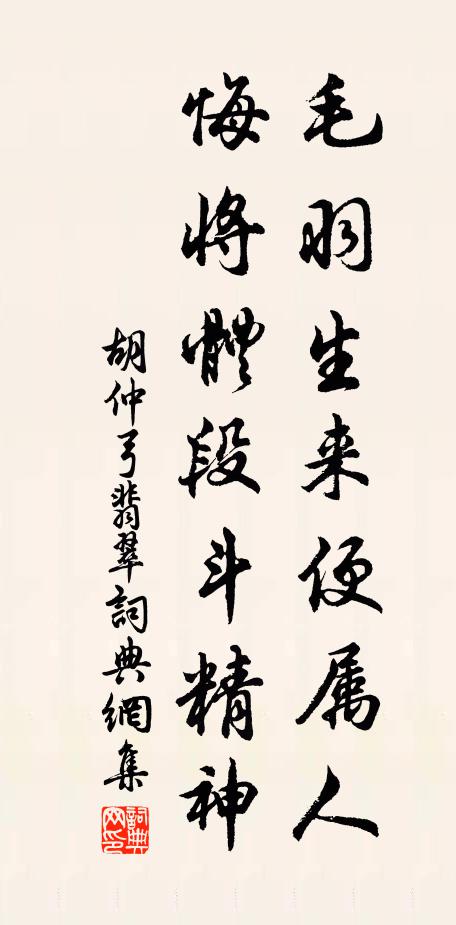 毛羽生来便属人
悔将體段斗精神
胡仲弓翡翠詞典網集
詞典网印